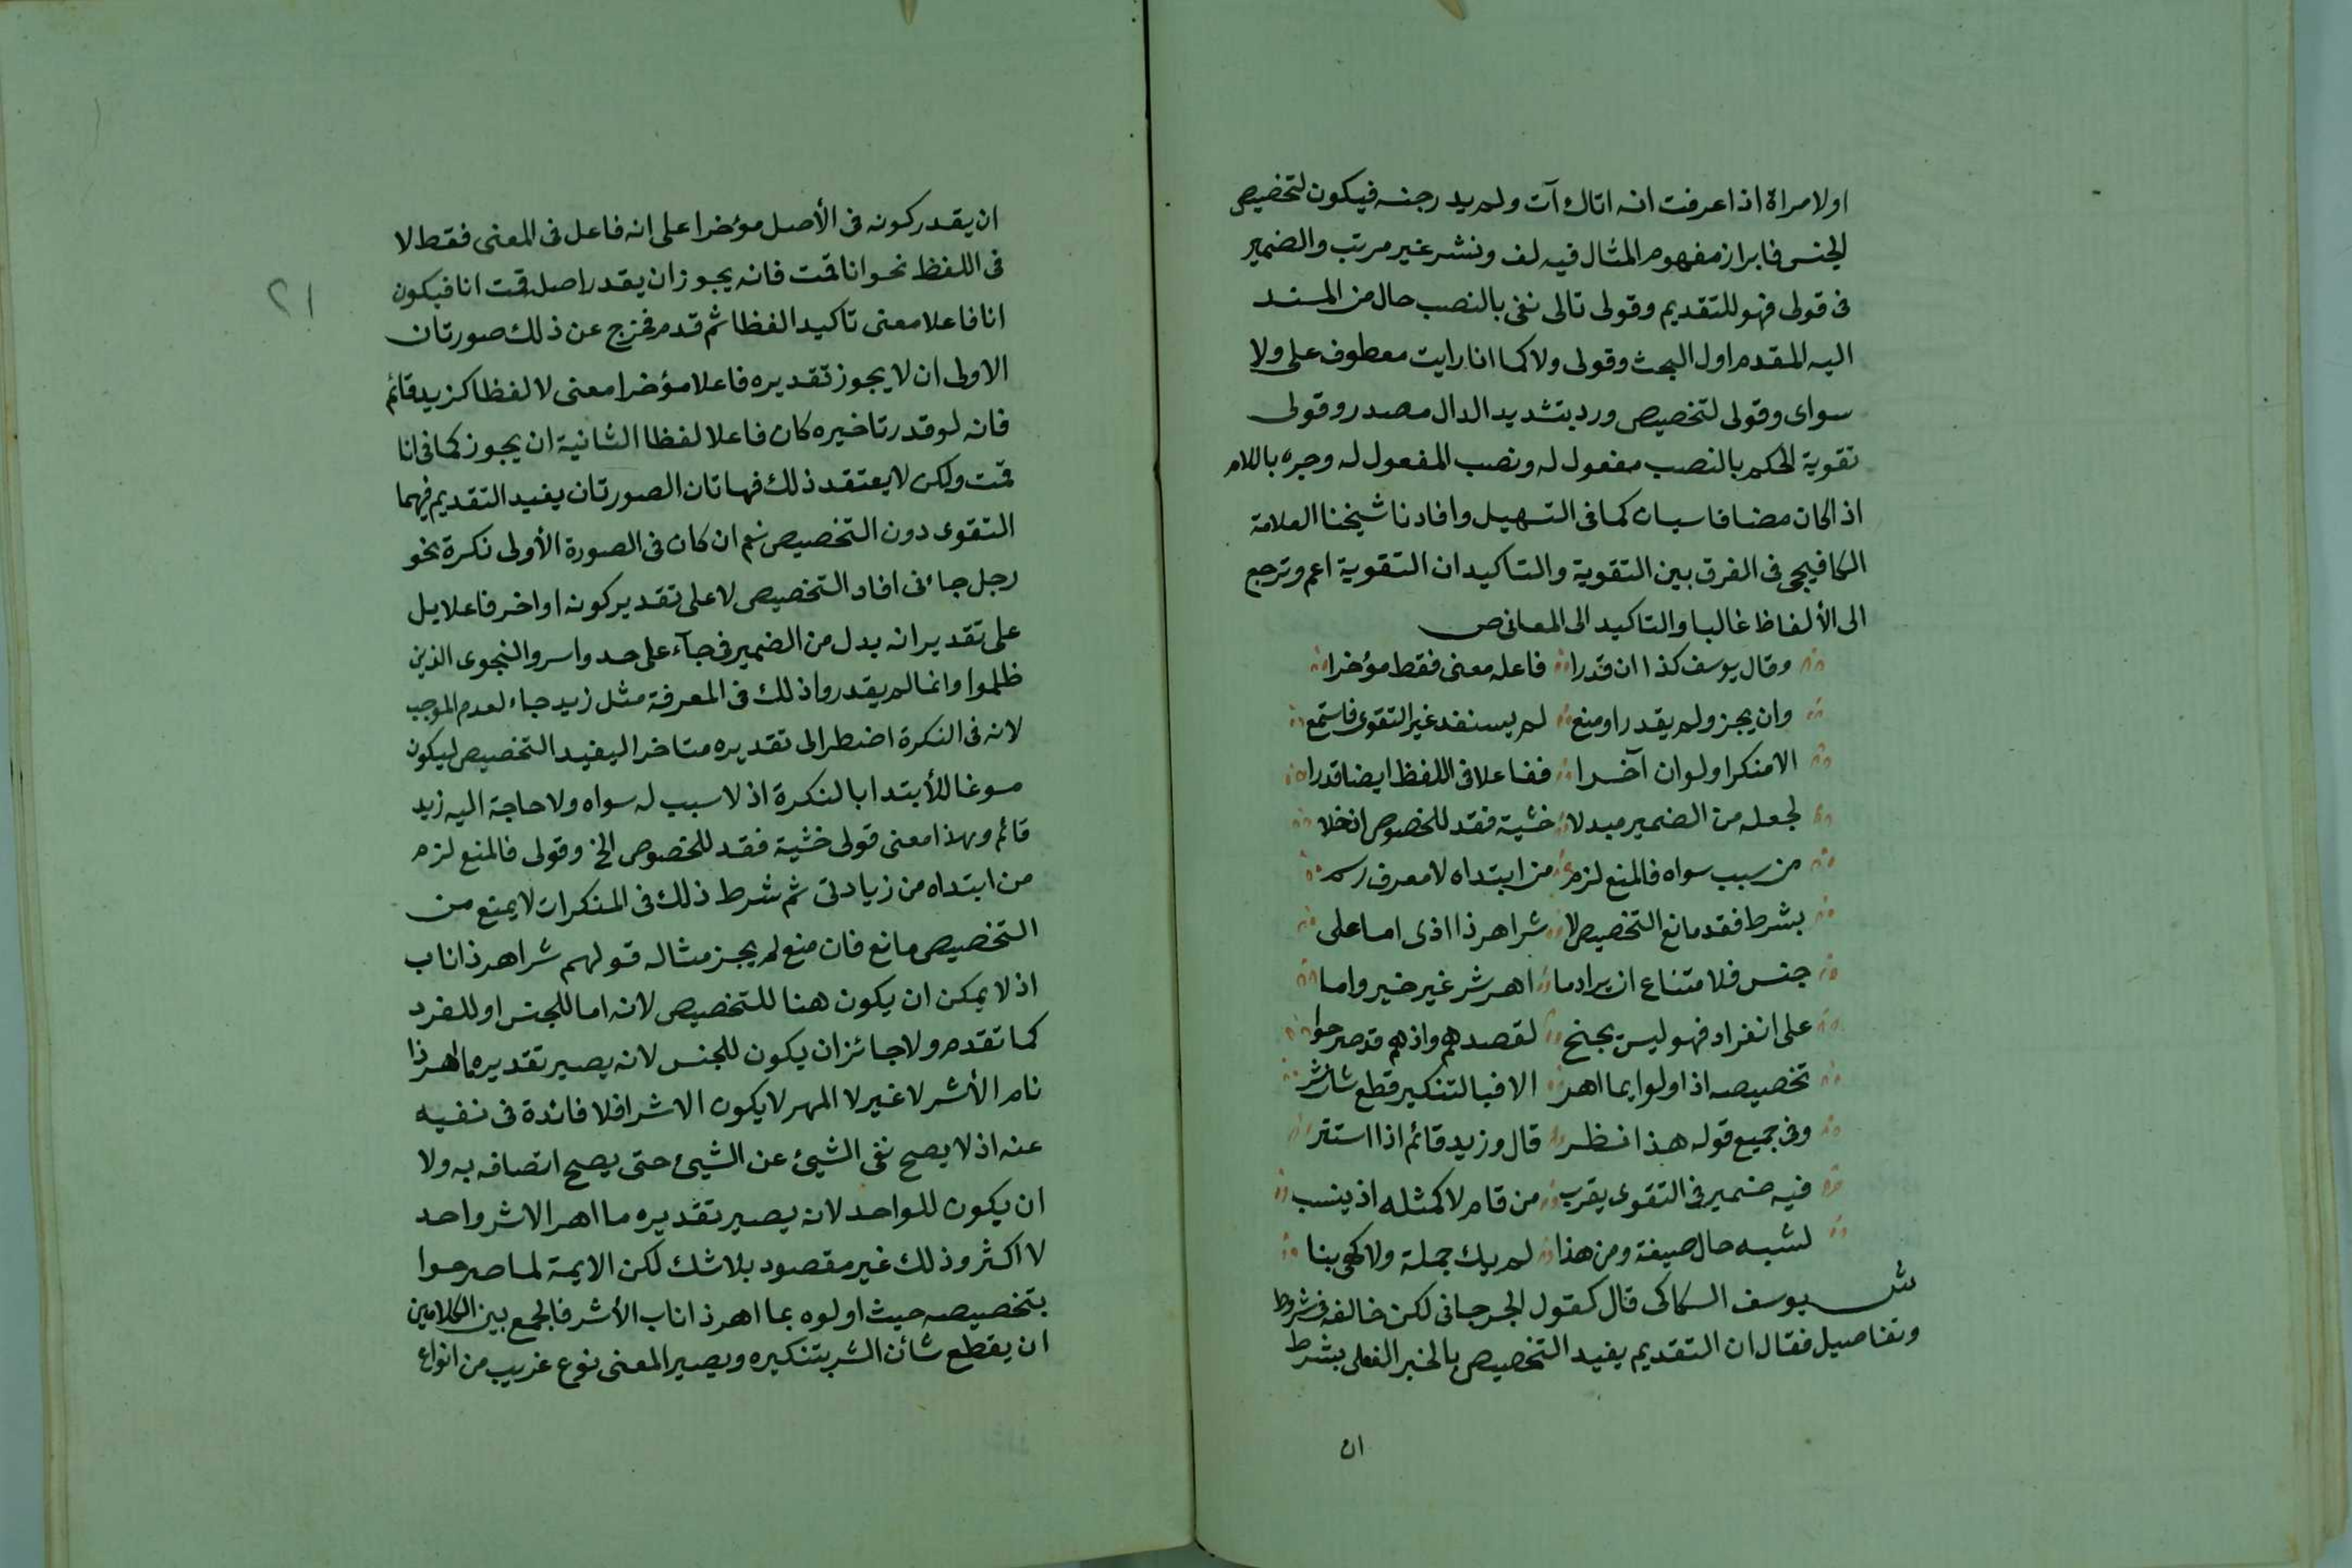 اولامراة اذا عرفت انه اتاك آت ولم يدر جنسه فيكون لتخصيص
الجنس فابراز مفهوم المثال فيه لف ونشر غير مرتب والضمير
فى قولى فهو للتقديم وقولى تالى نفى بالنصب حال من المسند
اليه المقدم اول البحث وقولى ولا كما انا رايت معطوف على ولا
سواى وقولى لتخصيص ورد بتشديد الدال مصدر وقولى
تقوية الحكم بالنصب مفعول له ونصب المفعول له وجره باللام
اذا كان مضافا سيان كما فى التسهيل وافادنا شيخنا العلامة
الكافيجى فى الفرق بين التقوية والتاكيد ان التقوية اعم وترجع
الى الألفاظ غالبا والتاكيد الى المعانى ص
وقال يوسف كذا ان قدرا فاعله معنى فقط مؤخرا
وان يجز ولم يقدر او منع لم يستفد غير التقوى فاستمع
الا منكرا ولو ان آخرا ففاعلا فى اللفظ ايضا قدرا
لجعله من الضمير مبدلا خشية فقد للخصوص ان خلا
من سبب سواه فالمنع لزم من ابتداه لا معرف رسم
بشرط فقد مانع التخصيص لا شر اهر ذا اذى اما على
جنس فلامتناع ان يراد ما اهر شر غير خير واما
على انفراد فهو ليس يجنح لقصدهم واذ هم قد صرحوا
تخصيصه اذ اولوا بما اهر الا فبالتنكير قطع شان شر
وفى جميع قوله هذا نظر قال وزيد قائم اذا استتر
فيه ضمير فى التقوى يقرب من قام لا كمثله اذ ينسب
لشبه حال صيغة ومن هذا لم يك جملة ولا كهى بنا
ش يوسف السكاكى قال كقول الجرجانى لكن خالفه فى شروط
وتفاصيل فقال ان التقديم يفيد التخصيص بالخبر الفعلى بشرط
ان
٢١
ان يقدر كونه فى الأصل مؤخرا على انه فاعل فى المعنى فقط لا
فى اللفظ نحو انا قمت فانه يجوز ان يقدر اصله قمت انا فيكون
انا فاعلا معنى تاكيدا لفظا ثم قدم فخرج عن ذلك صورتان
الاولى ان لا يجوز تقديره فاعلا مؤخرا معنى لا لفظا كزيد قائم
فانه لو قدر تاخيره كان فاعلا لفظا الثانية ان يجوز كما فى انا
قمت ولكن لا يعتقد ذلك فهاتان الصورتان يفيد التقديم فيهما
التقوى دون التخصيص نعم ان كان فى الصورة الأولى نكرة نحو
رجل جاءنى افاد التخصيص لا على تقدير كونه او اخر فاعلا بل
على تقدير انه بدل من الضمير فى جآء على حد واسروا النجوى الذين
ظلموا وانما لم يقدروا ذلك فى المعرفة مثل زيد جاء لعدم الموجب
لانه فى النكرة اضطر الى تقديره متاخرا ليفيد التخصيص ليكون
مسوغا للأبتدا بالنكرة اذ لا سبب له سواه ولا حاجة اليه زيد
قائم وهذا معنى قولى خشية فقد للخصوص الخ وقولى فالمنع لزم
من ابتداه من زيادتى ثم شرط ذلك فى المنكرات لا يمنع من
التخصيص مانع فان منع لم يجز مثاله قولهم شر اهر ذا ناب
اذ لا يمكن ان يكون هنا للتخصيص لانه اما للجنس او للفرد
كما تقدم ولا جائز ان يكون للجنس لانه يصير تقديره ما اهر ذا
نام الأشر لا غير لا المهر لا يكون الا شرا فلا فائدة فى نفيه
عنه اذ لا يصح نفى الشيئ عن الشيئ حتى يصح اتصافه به ولا
ان يكون للواحد لانه يصير تقديره ما اهر الا شر واحد
لا اكثر وذلك غير مقصود بلا شك لكن الايمة لما صرحوا
بتخصيصه حيث اولوه بما اهر ذا ناب الأشر فالجمع بين الكلامين
ان يقطع شائن الشر بتنكيره ويصير المعنى نوع غريب من انواع